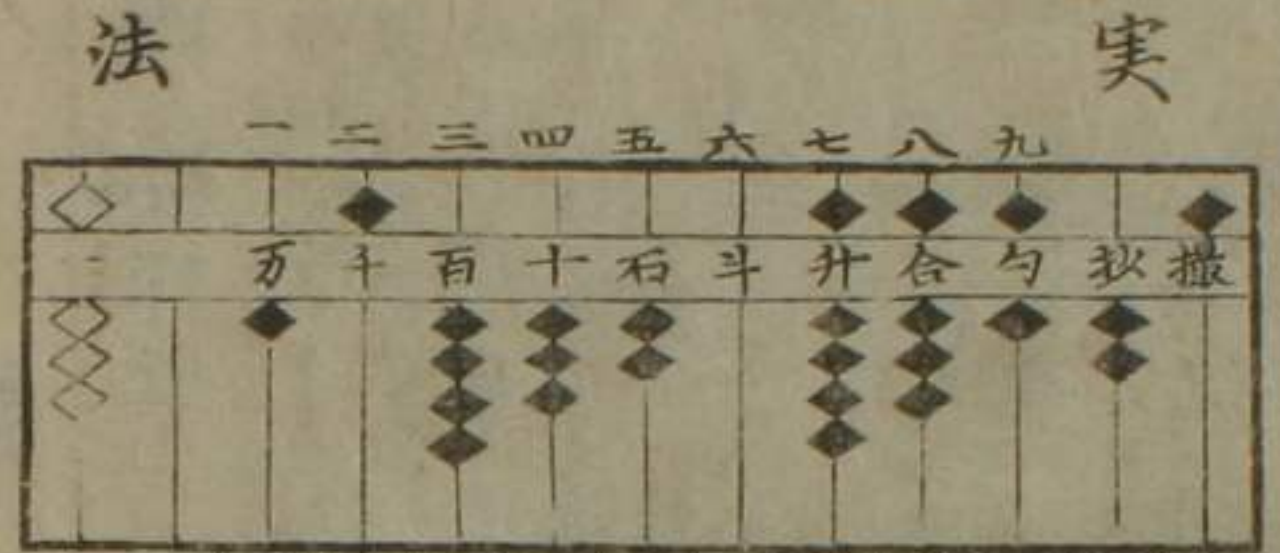 法 実
一 二 三 四 五 六 七 八 九
一 万 千 百 十 石 斗 升 合 勺 抄 撮